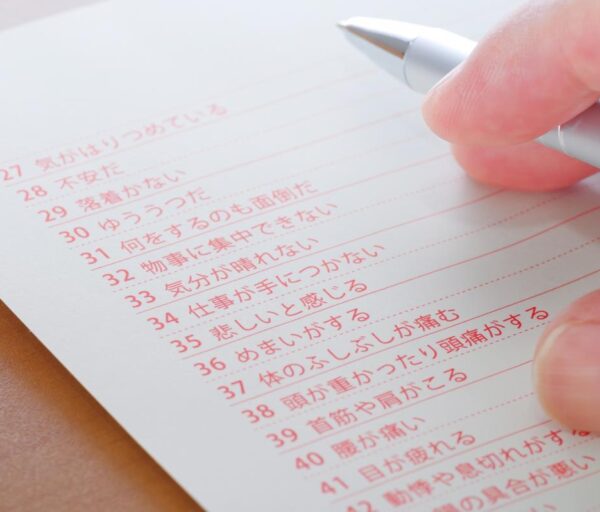 27 気がはりつめている
28 不安だ
29 落着かない
30 ゆううつだ
31 何をするのも面倒だ
32 物事に集中できない
33 気分が晴れない
34 仕事が手につかない
35 悲しいと感じる
36 めまいがする
37 体のふしぶしが痛む
38 頭が重かったり頭痛がする
39 首筋や肩がこる
40 腰が痛い
41 目が疲れる
42 動悸や息切れがする
の具合が悪い